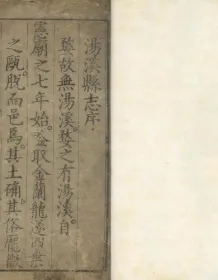 湯溪縣志序
婺故無湯溪婺之有湯溪自
憲廟之七年始盖取金蘭龍遂四
之甌脫而邑焉其土确其俗龐